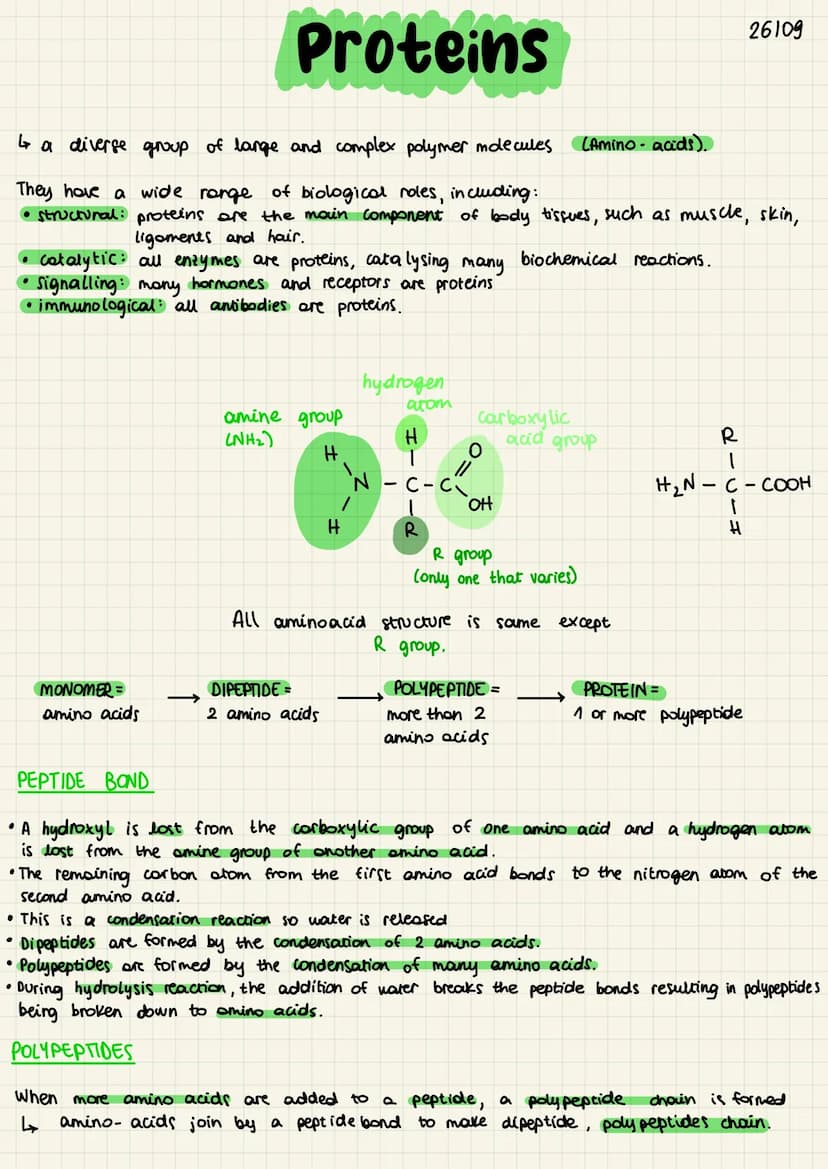 Proteins
26/09
↳ a diverse group of large and complex polymer molecules (Amino-acids).
They have a wide range of biological roles, including:
• structural: proteins are the main component of body tissues, such as muscle, skin,
ligaments and hair.
• catalytic: all enzymes are proteins, catalysing many biochemical reactions.
• signalling: many hormones and receptors are proteins
• immunological: all antibodies are proteins.
hydrogen
atom
amine group
(NH2)
carboxylic
acid group
H
H
O
N - C - C
OH
H
R
R group
(only one that varies)
R
H₂N - C - COOH
H
All aminoacid structure is same except
R group.
MONOMER = → DIPEPTIDE = → POLYPEPTIDE = → PROTEIN =
amino acids 2 amino acids more than 2 1 or more polypeptide
amino acids
PEPTIDE BOND
• A hydroxyl is lost from the carboxylic group of one amino acid and a hydrogen atom
is lost from the amine group of another amino acid.
• The remaining carbon atom from the first amino acid bonds to the nitrogen atom of the
second amino acid.
• This is a condensation reaction so water is released
• Dipeptides are formed by the condensation of 2 amino acids.
• Polypeptides are formed by the condensation of many amino acids.
• During hydrolysis reaction, the addition of water breaks the peptide bonds resulting in polypeptides
being broken down to amino acids.
POLYPEPTIDES
When more amino acids are added to a peptide, a polypeptide chain is formed
↳ amino-acids join by a peptide bond to make dipeptide, polypeptides chain.